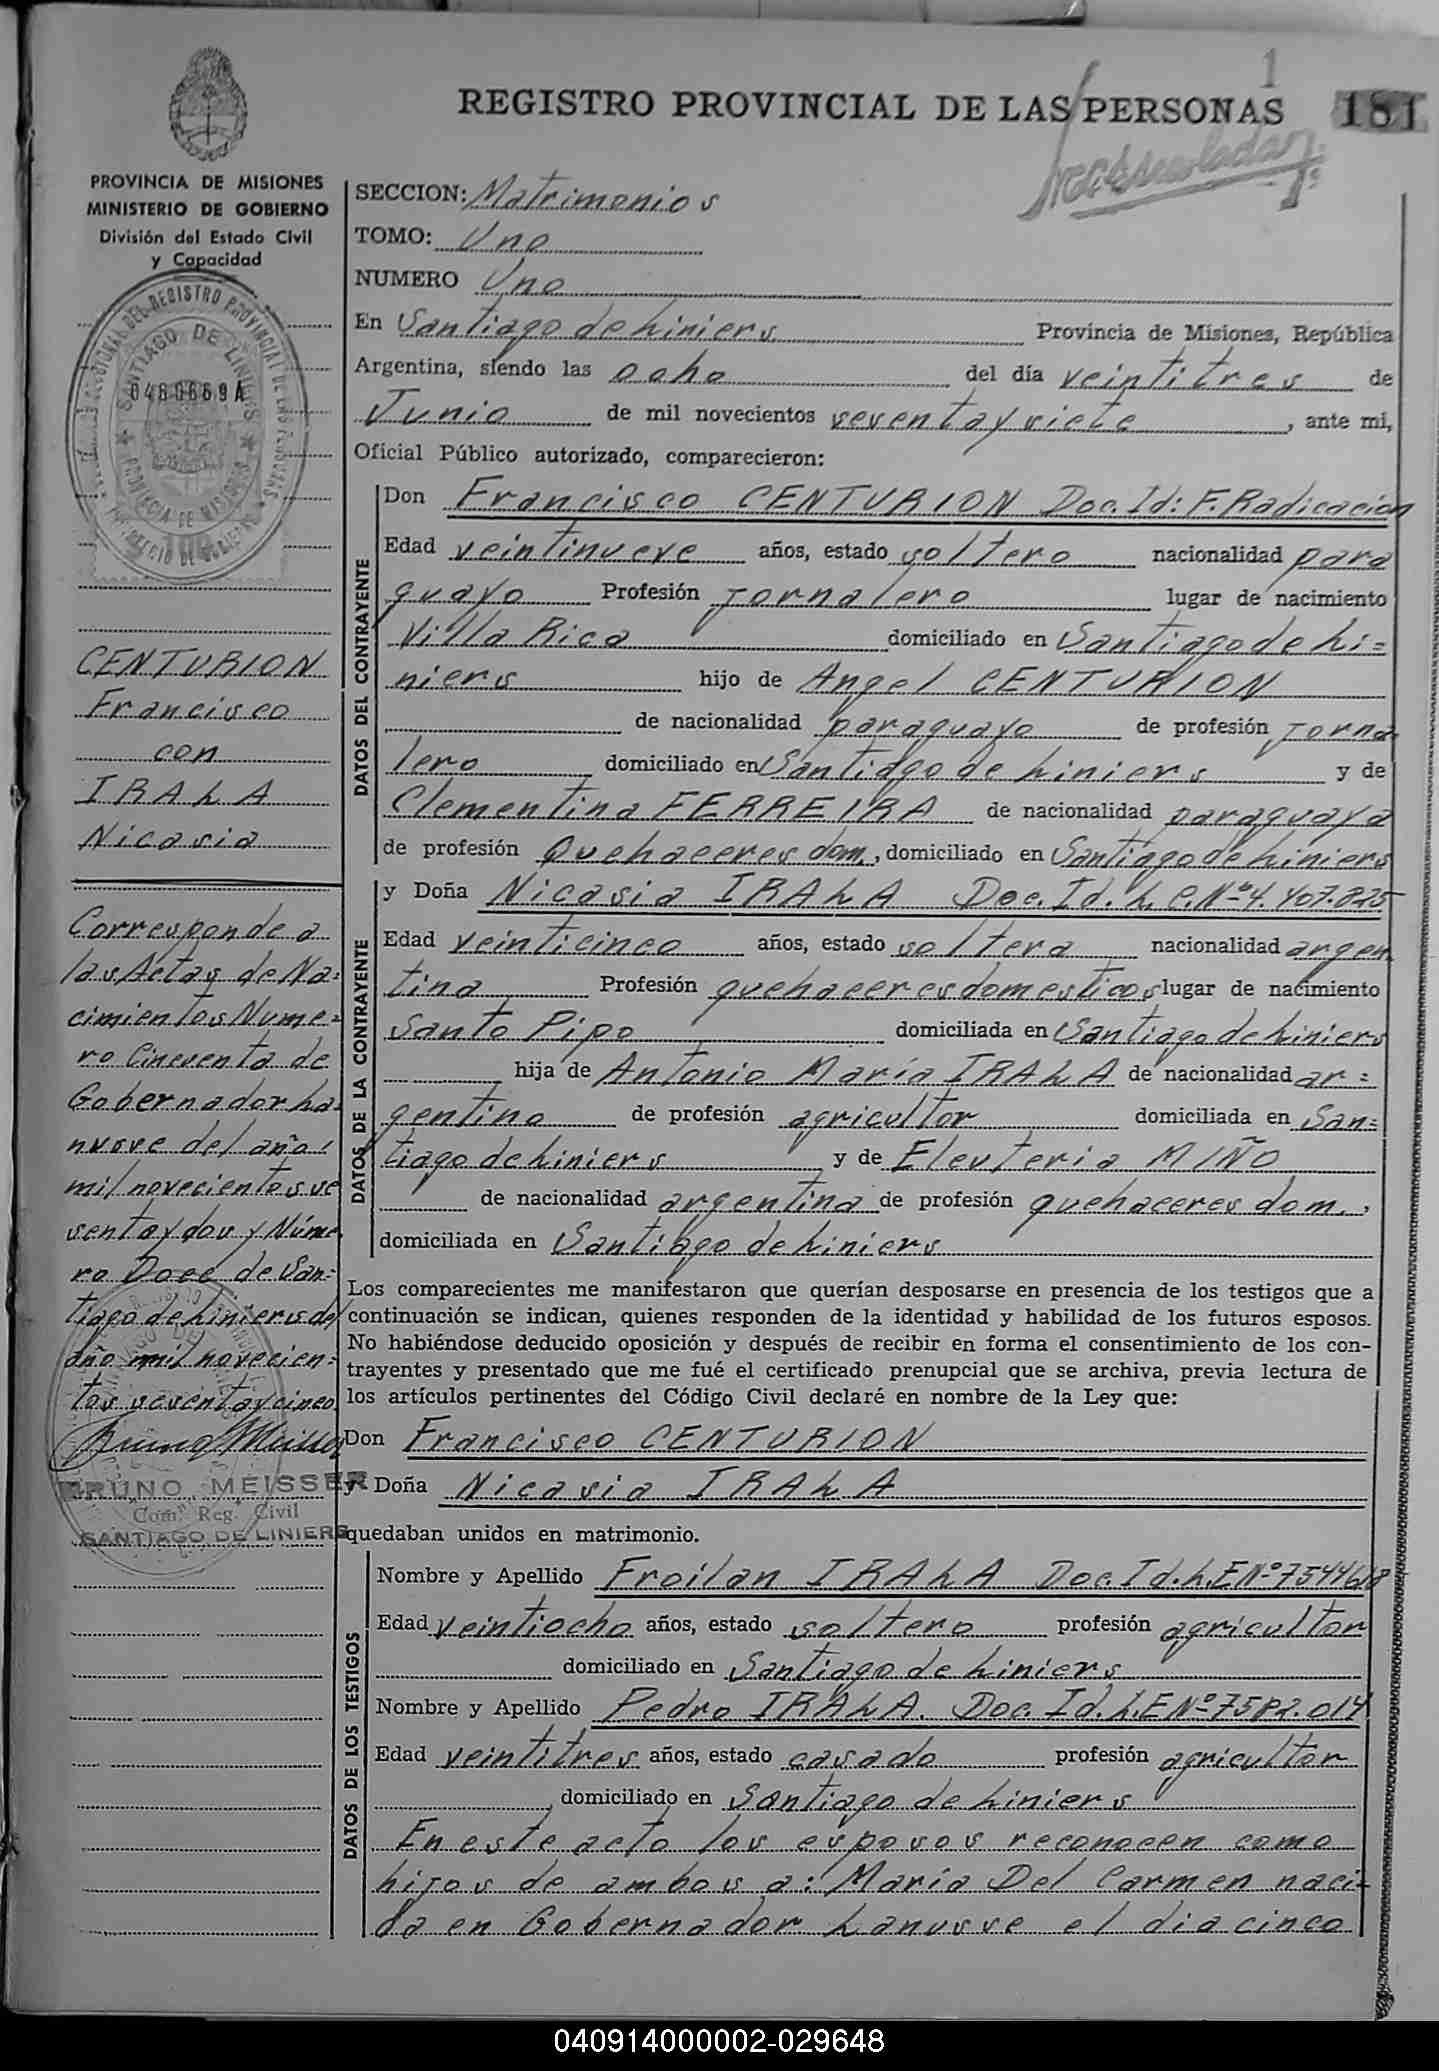 1
REGISTRO PROVINCIAL DE LAS PERSONAS 181
PROVINCIA DE MISIONES
MINISTERIO DE GOBIERNO
División del Estado Civil
y Capacidad
0460669 A
SANTIAGO DE LINIERS
PROVINCIA DE MISIONES
CENTURION
Francisco
con
IRALA
Nicasia
Corresponde a
las Actas de Na=
cimientos Nume=
ro Cincuenta de
Gobernador La=
nusse del año
mil novecientos se
senta y dos y Núme
ro Doce de San=
tiago de Liniers del
año mil novecien=
tos sesenta y cinco
BRUNO MEISSER
Com. Reg. Civil
SANTIAGO DE LINIERS
SECCION: Matrimonios
TOMO: Uno
NUMERO Uno
En Santiago de Liniers Provincia de Misiones, República
Argentina, siendo las ocho del día veintitres de
Junio de mil novecientos sesenta y siete, ante mi,
Oficial Público autorizado, comparecieron:
DATOS DEL CONTRAYENTE
Don Francisco CENTURION Doc. Id: F. Radicación
Edad veintinueve años, estado soltero nacionalidad para
guayo Profesión jornalero lugar de nacimiento
Villa Rica domiciliado en Santiago de Li=
niers hijo de Angel CENTURION
de nacionalidad paraguayo de profesión jorna
lero domiciliado en Santiago de Liniers y de
Clementina FERREIRA de nacionalidad paraguaya
de profesión Quehaceres dom., domiciliado en Santiago de Liniers
DATOS DE LA CONTRAYENTE
y Doña Nicasia IRALA Doc. Id. L.C. Nº 4.407.825
Edad veinticinco años, estado soltera nacionalidad argen
tina Profesión quehaceres domesticos lugar de nacimiento
Santo Pipo domiciliada en Santiago de Liniers
hija de Antonio María IRALA de nacionalidad ar=
gentino de profesión agricultor domiciliada en San=
tiago de Liniers y de Eleuteria MIÑO
de nacionalidad argentina de profesión quehaceres dom.,
domiciliada en Santiago de Liniers
Los comparecientes me manifestaron que querían desposarse en presencia de los testigos que a
continuación se indican, quienes responden de la identidad y habilidad de los futuros esposos.
No habiéndose deducido oposición y después de recibir en forma el consentimiento de los con-
trayentes y presentado que me fué el certificado prenupcial que se archiva, previa lectura de
los artículos pertinentes del Código Civil declaré en nombre de la Ley que:
Don Francisco CENTURION
y Doña Nicasia IRALA
quedaban unidos en matrimonio.
DATOS DE LOS TESTIGOS
Nombre y Apellido Froilan IRALA Doc. Id. L.E Nº
Edad veintiocho años, estado soltero profesión agricultor
domiciliado en Santiago de Liniers
Nombre y Apellido Pedro IRALA. Doc. Id. L.E Nº 7582.014
Edad veintitres años, estado casado profesión agricultor
domiciliado en Santiago de Liniers
En este acto los esposos reconocen como
hijos de ambos a: María Del Carmen naci-
da en Gobernador Lanusse el dia cinco
040914000002-029648